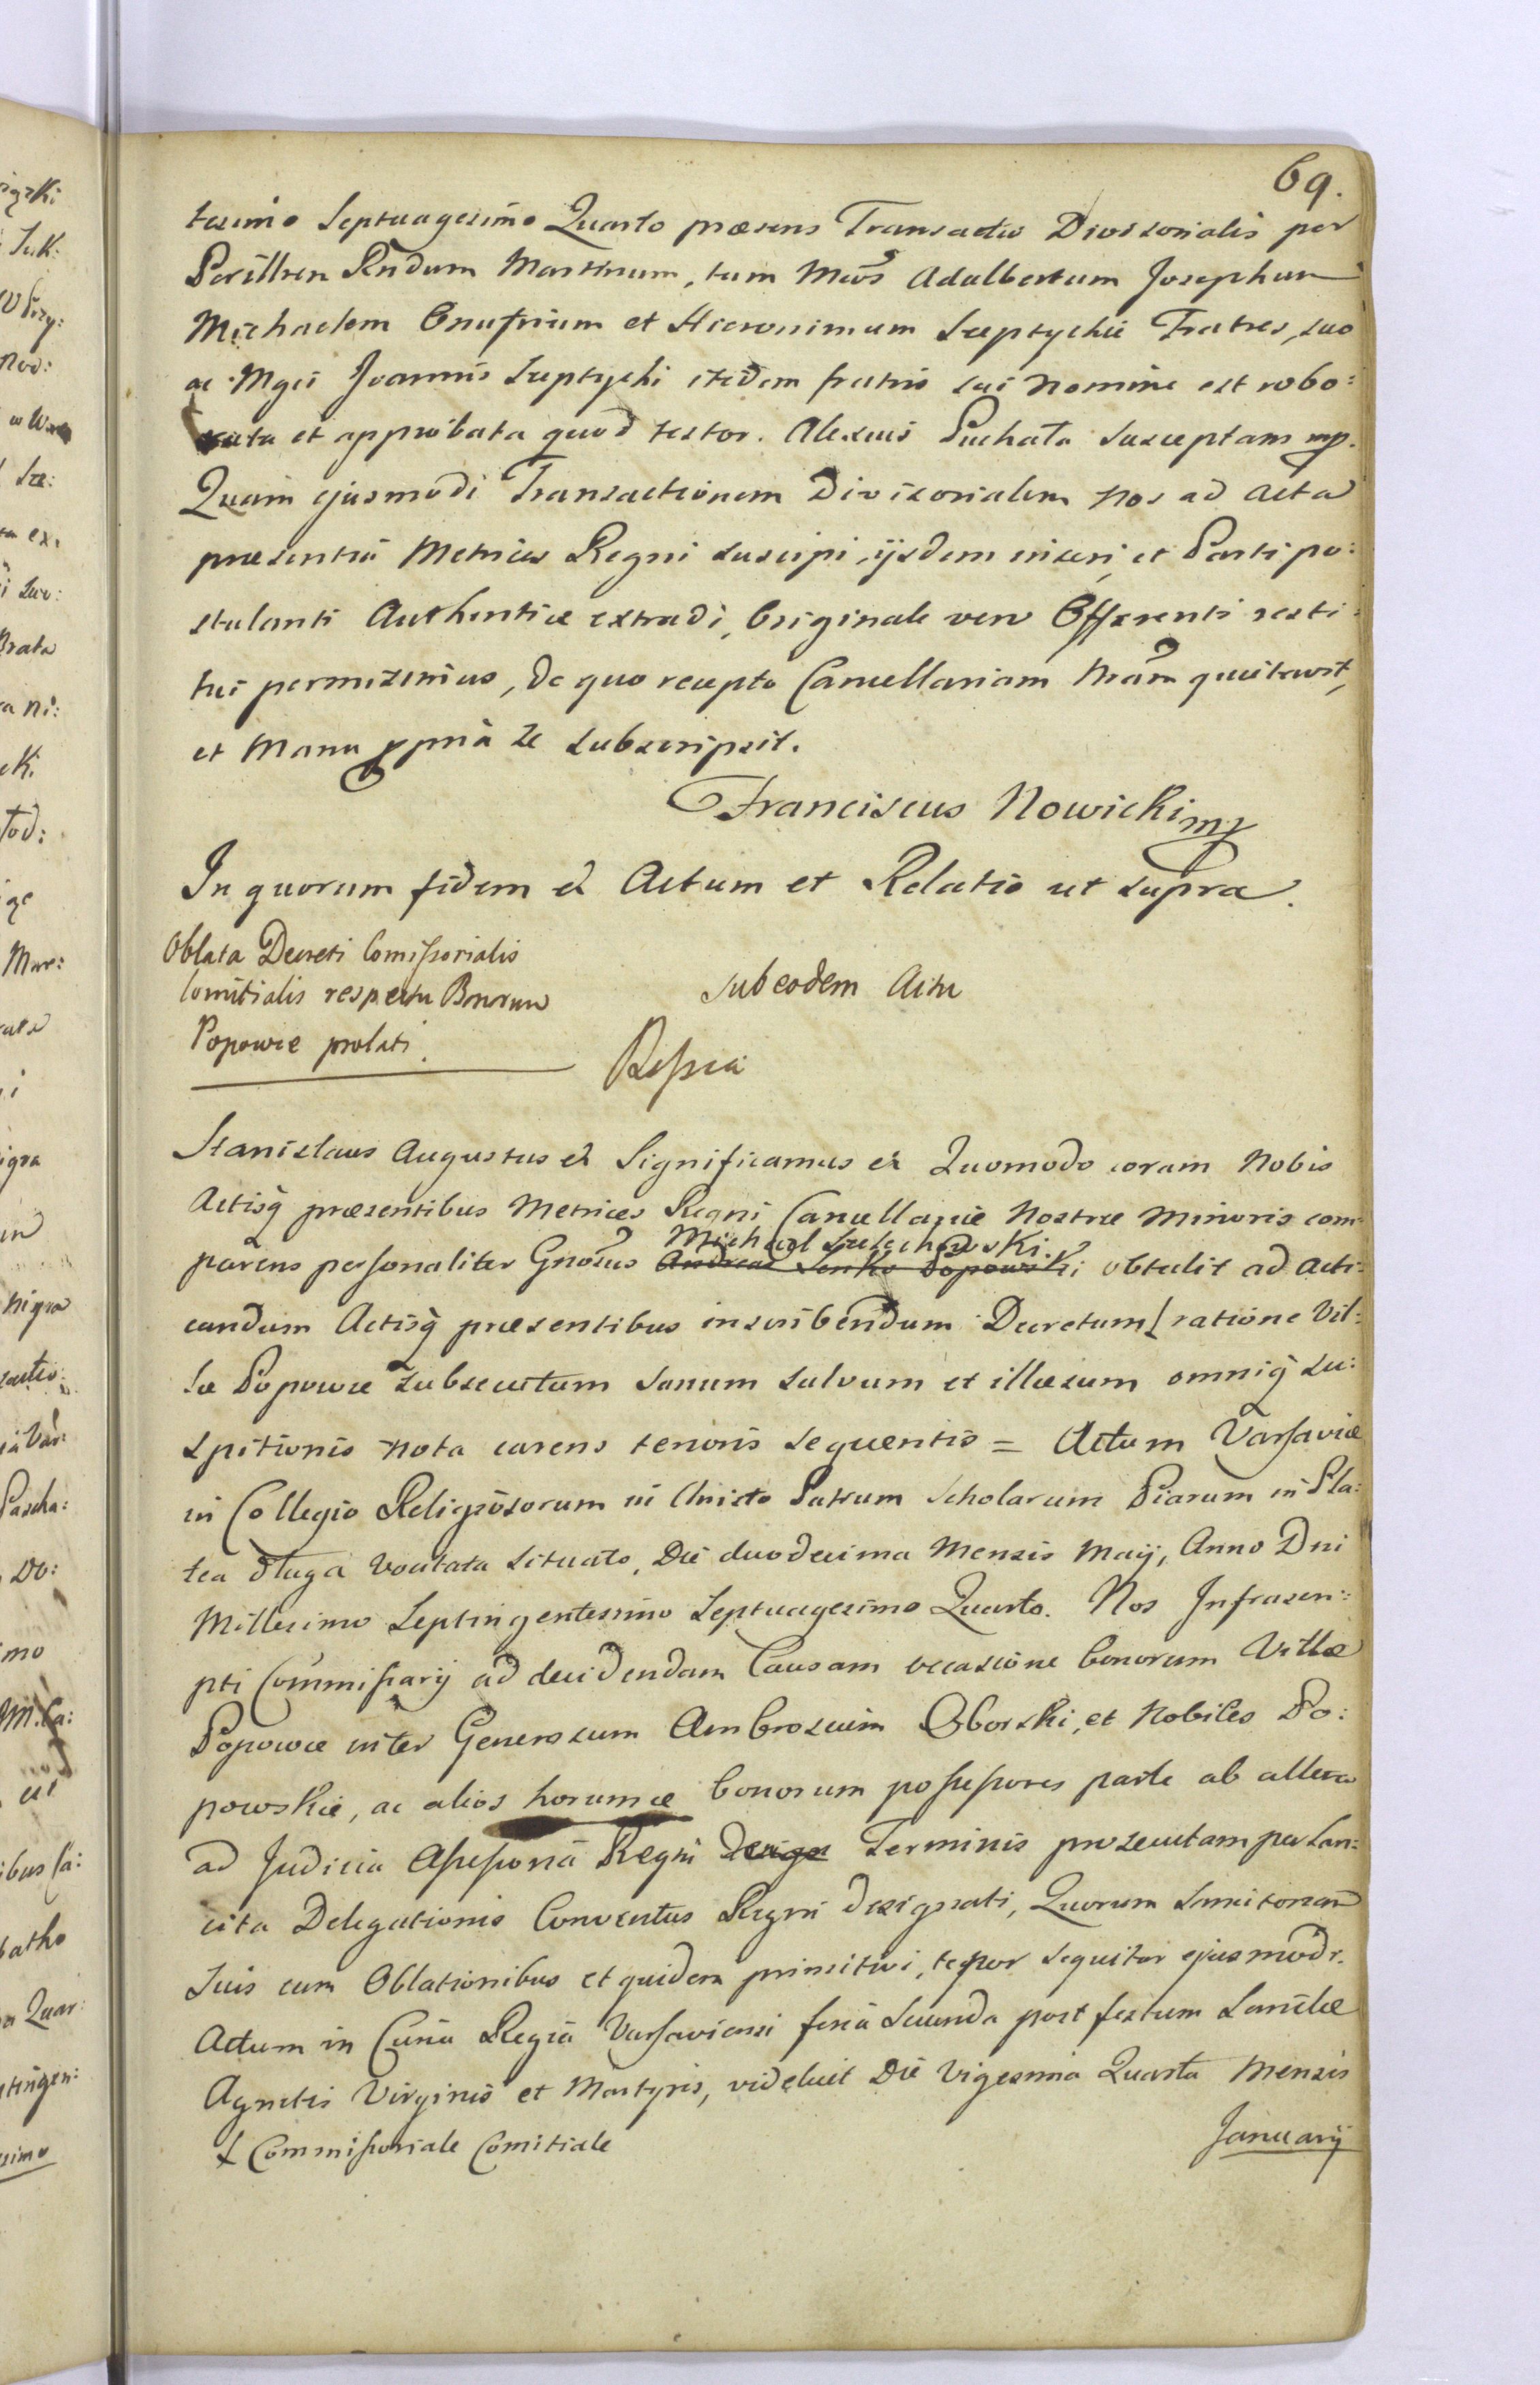 69.
tesimo Septuagesimo Quarto præsens Transactio Divisorialis per
Perillrem Rndum Martinum, tum Mcos Adalbertum Josephum
Michaelem Onufrium et Hieronimum Szeptyckie Fratres, suo
ac Mgci Joannis Szeptycki itidem fratris sui Nomine est robo:
rata et approbata quod testor. Alexius Puchała Susceptans mp.
Quam ejusmodi Transactionem Divisorialem Nos ad Acta
præsentia Metrices Regni suscipi, ijsdem inseri, et Parti po:
stulanti Authentice extradi, Originale vero Offerenti resti:
tui permisimus, de quo recepto Cancellariam Nram quietavit,
et Manu ppria se subscripsit.
Franciscus Nowicki mp
In quorum fidem et Actum et Relatio ut supra.
Oblata Decreti Comissorialis
Comitialis respectu Bnorum
Popowce prolati.
sub eodem Actu
Ressca
Stanislaus Augustus et Significamus et Quomodo coram Nobis
Actisq præsentibus Metrices Regni Cancellariæ Nostræ Minoris com:
Michael Szelechowski
parens personaliter Gnosus Andreas Senko Popowski obtulit ad acti:
candum Actisq præsentibus inscribendum Decretum ratione Vil:
læ Popowce subsecutum sanum salvum et illæsum omniq su:
spitionis nota carens tenoris sequentis = Actum Varsaviæ
in Collegio Religiosorum in Christo Patrum Scholarum Piarum in Pla:
tea długa vocitata situato, Die duodecima Mensis Maij, Anno Dni
Millesimo Septingentesimo Septuagesimo Quarto. Nos Infrascri:
pti Commissarij ad decidendam Causam occasione bonorum Villæ
Popowce inter Generosum Ambrosium Oborski, et Nobiles Po:
powskie, ac alios horumce bonorum possessores parte ab altera
ad Judicia Assessoria Regni Terminis prosecutam per San:
cita Delegationis Conventus Regni designati, Quorum
Suis cum Oblationibus et quidem primitivi, tenor sequitur ejusmodi.
Actum in Curia Regia Varsaviensi feria Secunda post festum Sanctæ
Agnetis Virginis et Martyris, videlicet Die Vigesima Quarta Mensis
Commissoriale Comitiale
Januarij